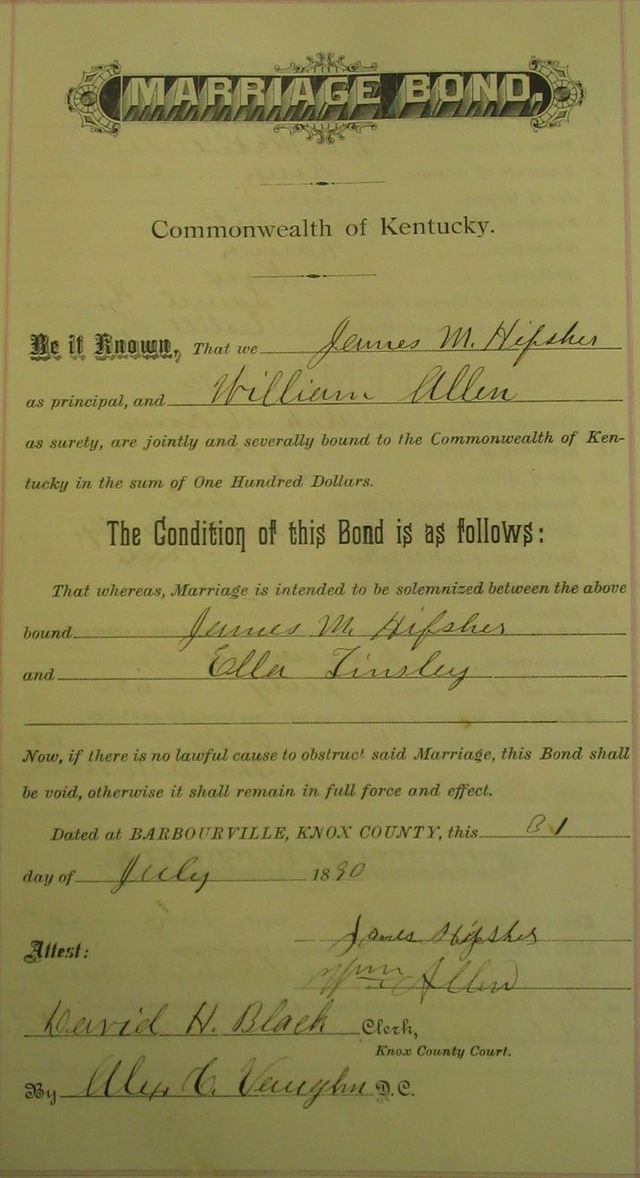 MARRIAGE BOND,
Commonwealth of Kentucky.
Be it Known, That we James M. Hipsher
as principal, and William Allen
as surety, are jointly and severally bound to the Commonwealth of Ken-
tucky in the sum of One Hundred Dollars.
The Condition of this Bond is as follows:
That whereas, Marriage is intended to be solemnized between the above
bound James M. Hipsher
and Ella Tinsley
Now, if there is no lawful cause to obstruct said Marriage, this Bond shall
be void, otherwise it shall remain in full force and effect.
Dated at BARBOURVILLE, KNOX COUNTY, this 31
day of July 1890
James Hipsher
Attest:
Wm Allen
David H. Black Clerk,
Knox County Court.
By Alex C. Vaughn D.C.